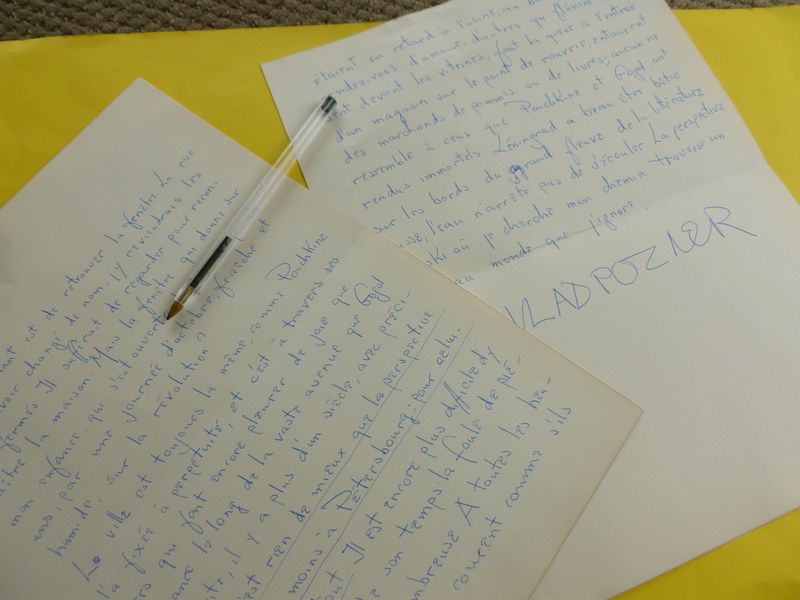 nant est de retrouver la fenêtre. La rue
avoir changé de nom, j'y reviendrais les
fermés. Il suffirait de regarder pour recon-
aître la maison. Mais la fenêtre qui donne sur
mon enfance, qui s'est ouvert
ans, par une journée d'octobre, fraîche et
humide, sur la révolution ?
La ville est toujours la même, comme Pouchkine
l'a fixée à perpétuité, et c'est à travers ses
rs qui font encore pleurer de joie que
ance le long de la vaste avenue que Gogol
ite, il y a plus d'un siècle, avec préci-
est rien de mieux que la perspective
moins à Pétersbourg ; pour celui-
out. Il est encore plus difficile d'y
e son temps : la foule de pié-
mbreuse. A toutes les heu-
courent comme s'ils
étaient en retard à l'usine, au
ndez-vous d'amour. d'autres qui flânent
devant les vitrines, font la queue à l'entrée
d'un magasin sur le point de rouvrir, entourent
des marchands de pommes ou de livres ; aucun ne
ressemble à ceux que Pouchkine et Gogol ont
rendus immortels. Léningrad a beau être bâtie
sur les bords du grand fleuve de la littérature
usse, l'eau n'arrête pas de s'écouler. La perspective
ki où je cherche mon chemin traverse un
monde que j'ignore.
VLAD POZNER